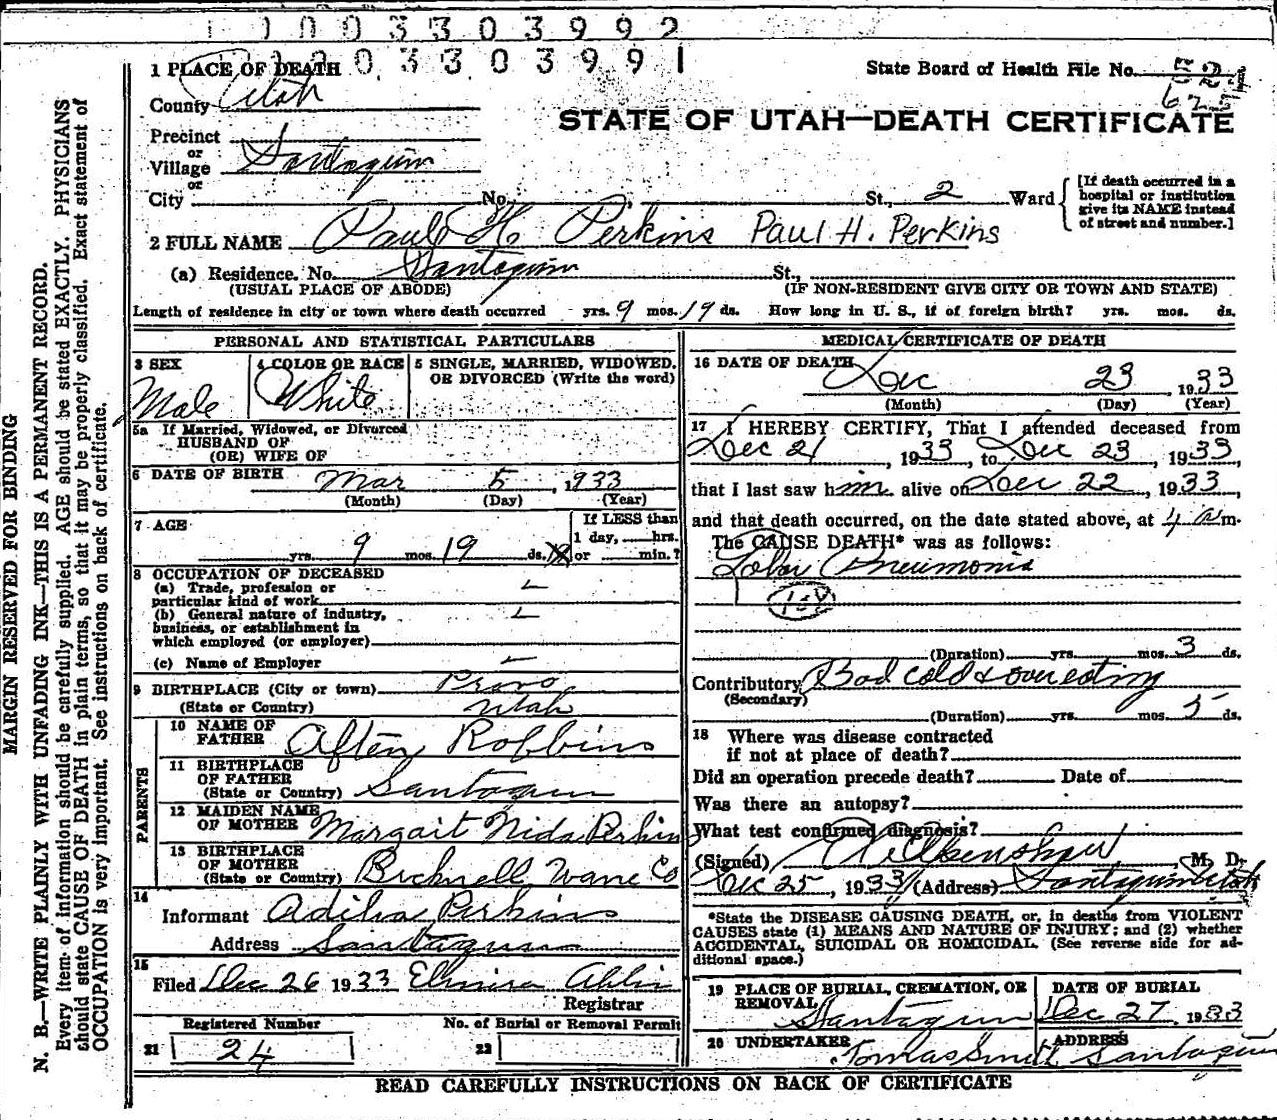 1 0 0 3 3 0 3 9 9 2
0 3 3 0 3 9 9 1
1 PLACE OF DEATH
State Board of Health File No.
County Utah
STATE OF UTAH—DEATH CERTIFICATE
Precinct
or
Village Santaquin
or
City No. St., 2 Ward
[If death occurred in a
hospital or institution
give its NAME instead
of street and number.]
2 FULL NAME Paul H Perkins Paul H. Perkins
(a) Residence. No. Santaquin St.,
(USUAL PLACE OF ABODE) (IF NON-RESIDENT GIVE CITY OR TOWN AND STATE)
Length of residence in city or town where death occurred yrs. 9 mos. 19 ds. How long in U. S., if of foreign birth? yrs. mos. ds.
PERSONAL AND STATISTICAL PARTICULARS
3 SEX
Male
4 COLOR OR RACE
White
5 SINGLE, MARRIED, WIDOWED,
OR DIVORCED (Write the word)
5a If Married, Widowed, or Divorced
HUSBAND OF
(OR) WIFE OF
6 DATE OF BIRTH Mar 5, 1933
(Month) (Day) (Year)
7 AGE
yrs. 9 mos. 19 ds.
If LESS than
1 day, hrs.
or min.?
8 OCCUPATION OF DECEASED
(a) Trade, profession or
particular kind of work
(b) General nature of industry,
business, or establishment in
which employed (or employer)
(c) Name of Employer
9 BIRTHPLACE (City or town) Provo
(State or Country) Utah
PARENTS
10 NAME OF
FATHER Aften Robbins
11 BIRTHPLACE
OF FATHER
(State or Country) Santaquin
12 MAIDEN NAME
OF MOTHER Margait Nida Perkins
13 BIRTHPLACE
OF MOTHER
(State or Country) Bicknell Wane Co
14
Informant Adilia Perkins
Address Santaquin
15
Filed Dec 26 1933 Elmira
Registrar
Registered Number
21 24
No. of Burial or Removal Permit
22
MEDICAL CERTIFICATE OF DEATH
16 DATE OF DEATH
Dec 23 1933
(Month) (Day) (Year)
17 I HEREBY CERTIFY, That I attended deceased from
Dec 21, 1933, to Dec 23, 1933,
that I last saw him alive on Dec 22, 1933,
and that death occurred, on the date stated above, at 4 a m.
The CAUSE DEATH* was as follows:
Lobar Pneumonia
108
(Duration) yrs. mos. 3 ds.
Contributory Bad cold & over eating
(Secondary)
(Duration) yrs. mos. 5 ds.
18 Where was disease contracted
if not at place of death?
Did an operation precede death? Date of
Was there an autopsy?
What test confirmed diagnosis?
(Signed) , M. D.
Dec 25, 1933 (Address) Santaquin Utah
*State the DISEASE CAUSING DEATH, or, in deaths from VIOLENT
CAUSES state (1) MEANS AND NATURE OF INJURY; and (2) whether
ACCIDENTAL, SUICIDAL OR HOMICIDAL. (See reverse side for ad-
ditional space.)
19 PLACE OF BURIAL, CREMATION, OR
REMOVAL Santaquin
DATE OF BURIAL
Dec 27 1933
20 UNDERTAKER
Tomas Smith
ADDRESS
Santaquin
READ CAREFULLY INSTRUCTIONS ON BACK OF CERTIFICATE
MARGIN RESERVED FOR BINDING
N. B.—WRITE PLAINLY WITH UNFADING INK—THIS IS A PERMANENT RECORD.
Every item of information should be carefully supplied. AGE should be stated EXACTLY. PHYSICIANS
should state CAUSE OF DEATH in plain terms, so that it may be properly classified. Exact statement of
OCCUPATION is very important. See instructions on back of certificate.